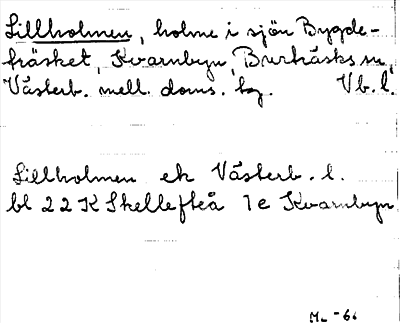 Lillholmen, holme i sjön Bygde-
träsket, Kvarnbyn, Burträsks sn,
Västerb. mell. doms. tg. Vb. l.
Lillholmen ek Västerb. l.
bl 22 K Skellefteå 1e Kvarnbyn